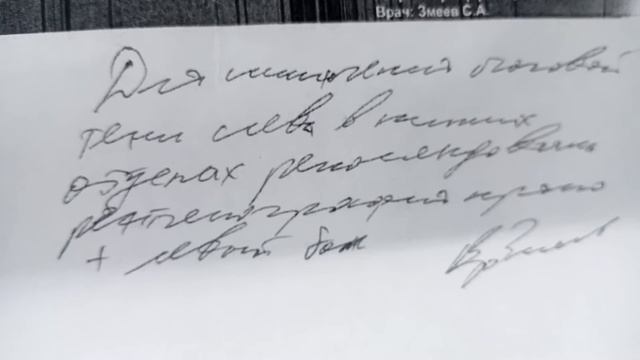 Врач: Змеев С.А.
Для исключения очаговой
тени слева в нижних
отделах рекомендована
рентгенография прямо
+ левый бок Вр Змеев